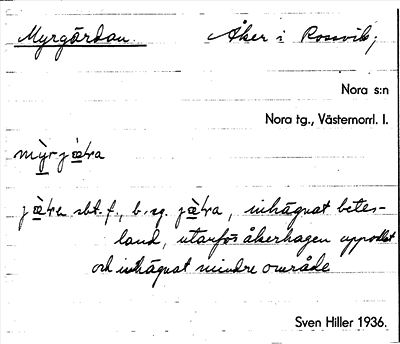 Myrgärdan. Åker i Rossvik;
Nora s:n
Nora tg., Västernorrl. l.
sbt. f., b. sg. , inhägnat betes-
land, utanför åkerhagen uppodlat
och inhägnat mindre område
Sven Hiller 1936.